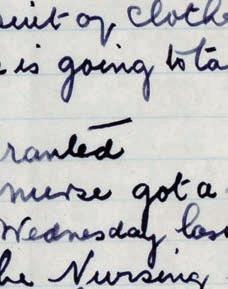 suit of cloth
is going to ta
ranted
nurse got a
Wednesday las
he Nursing